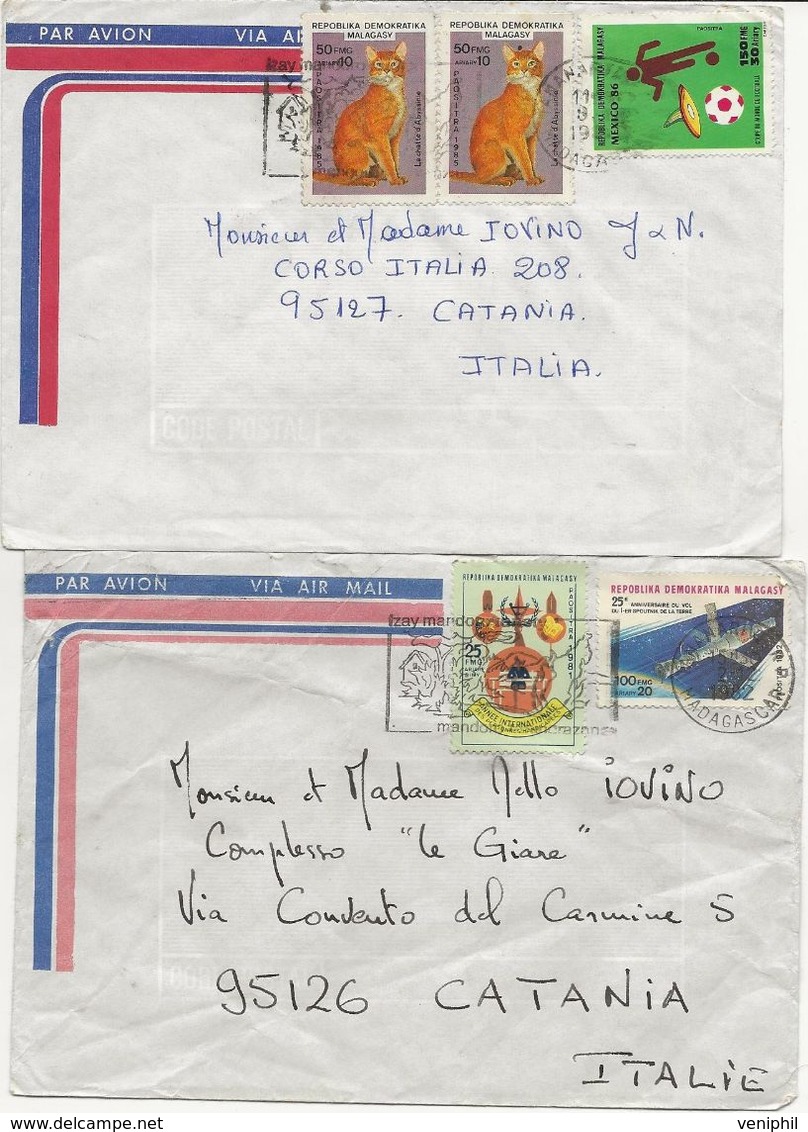 PAR AVION VIA AI
REPOBLIKA DEMOKRATIKA
MALAGASY
50 FMG
ARIARY 10
PAOSITRA 1985
La chatte d'Abyssinie
REPOBLIKA DEMOKRATIKA
MALAGASY
50 FMG
ARIARY 10
PAOSITRA 1985
La chatte d'Abyssinie
PAOSITRA
REPOBLIKA DEMOKRATIKA MALAGASY
MEXICO 86
150 FMG
30 Ariary
COUPE DU MONDE DE FOOTBALL
Izay man
11
Monsieur et Madame IOVINO J & N.
CORSO ITALIA 208.
95127. CATANIA.
ITALIA.
CODE POSTAL
PAR AVION VIA AIR MAIL
REPOBLIKA DEMOKRATIKA MALAGASY
PAOSITRA 1981
25
FMG
ARIARY
ANNEE INTERNATIONALE
REPOBLIKA DEMOKRATIKA MALAGASY
25e ANNIVERSAIRE DU VOL
DU 1ER SPOUTNIK DE LA TERRE
100 FMG
ARIARY 20
PAOSITRA 1982
Izay mandoro tanety
mandoro tanindrazana
1982
MADAGASCAR
Monsieur et Madame Nello IOVINO
Complesso "le Giare"
Via Convento del Carmine 5
95126 CATANIA
ITALIE
veniphil